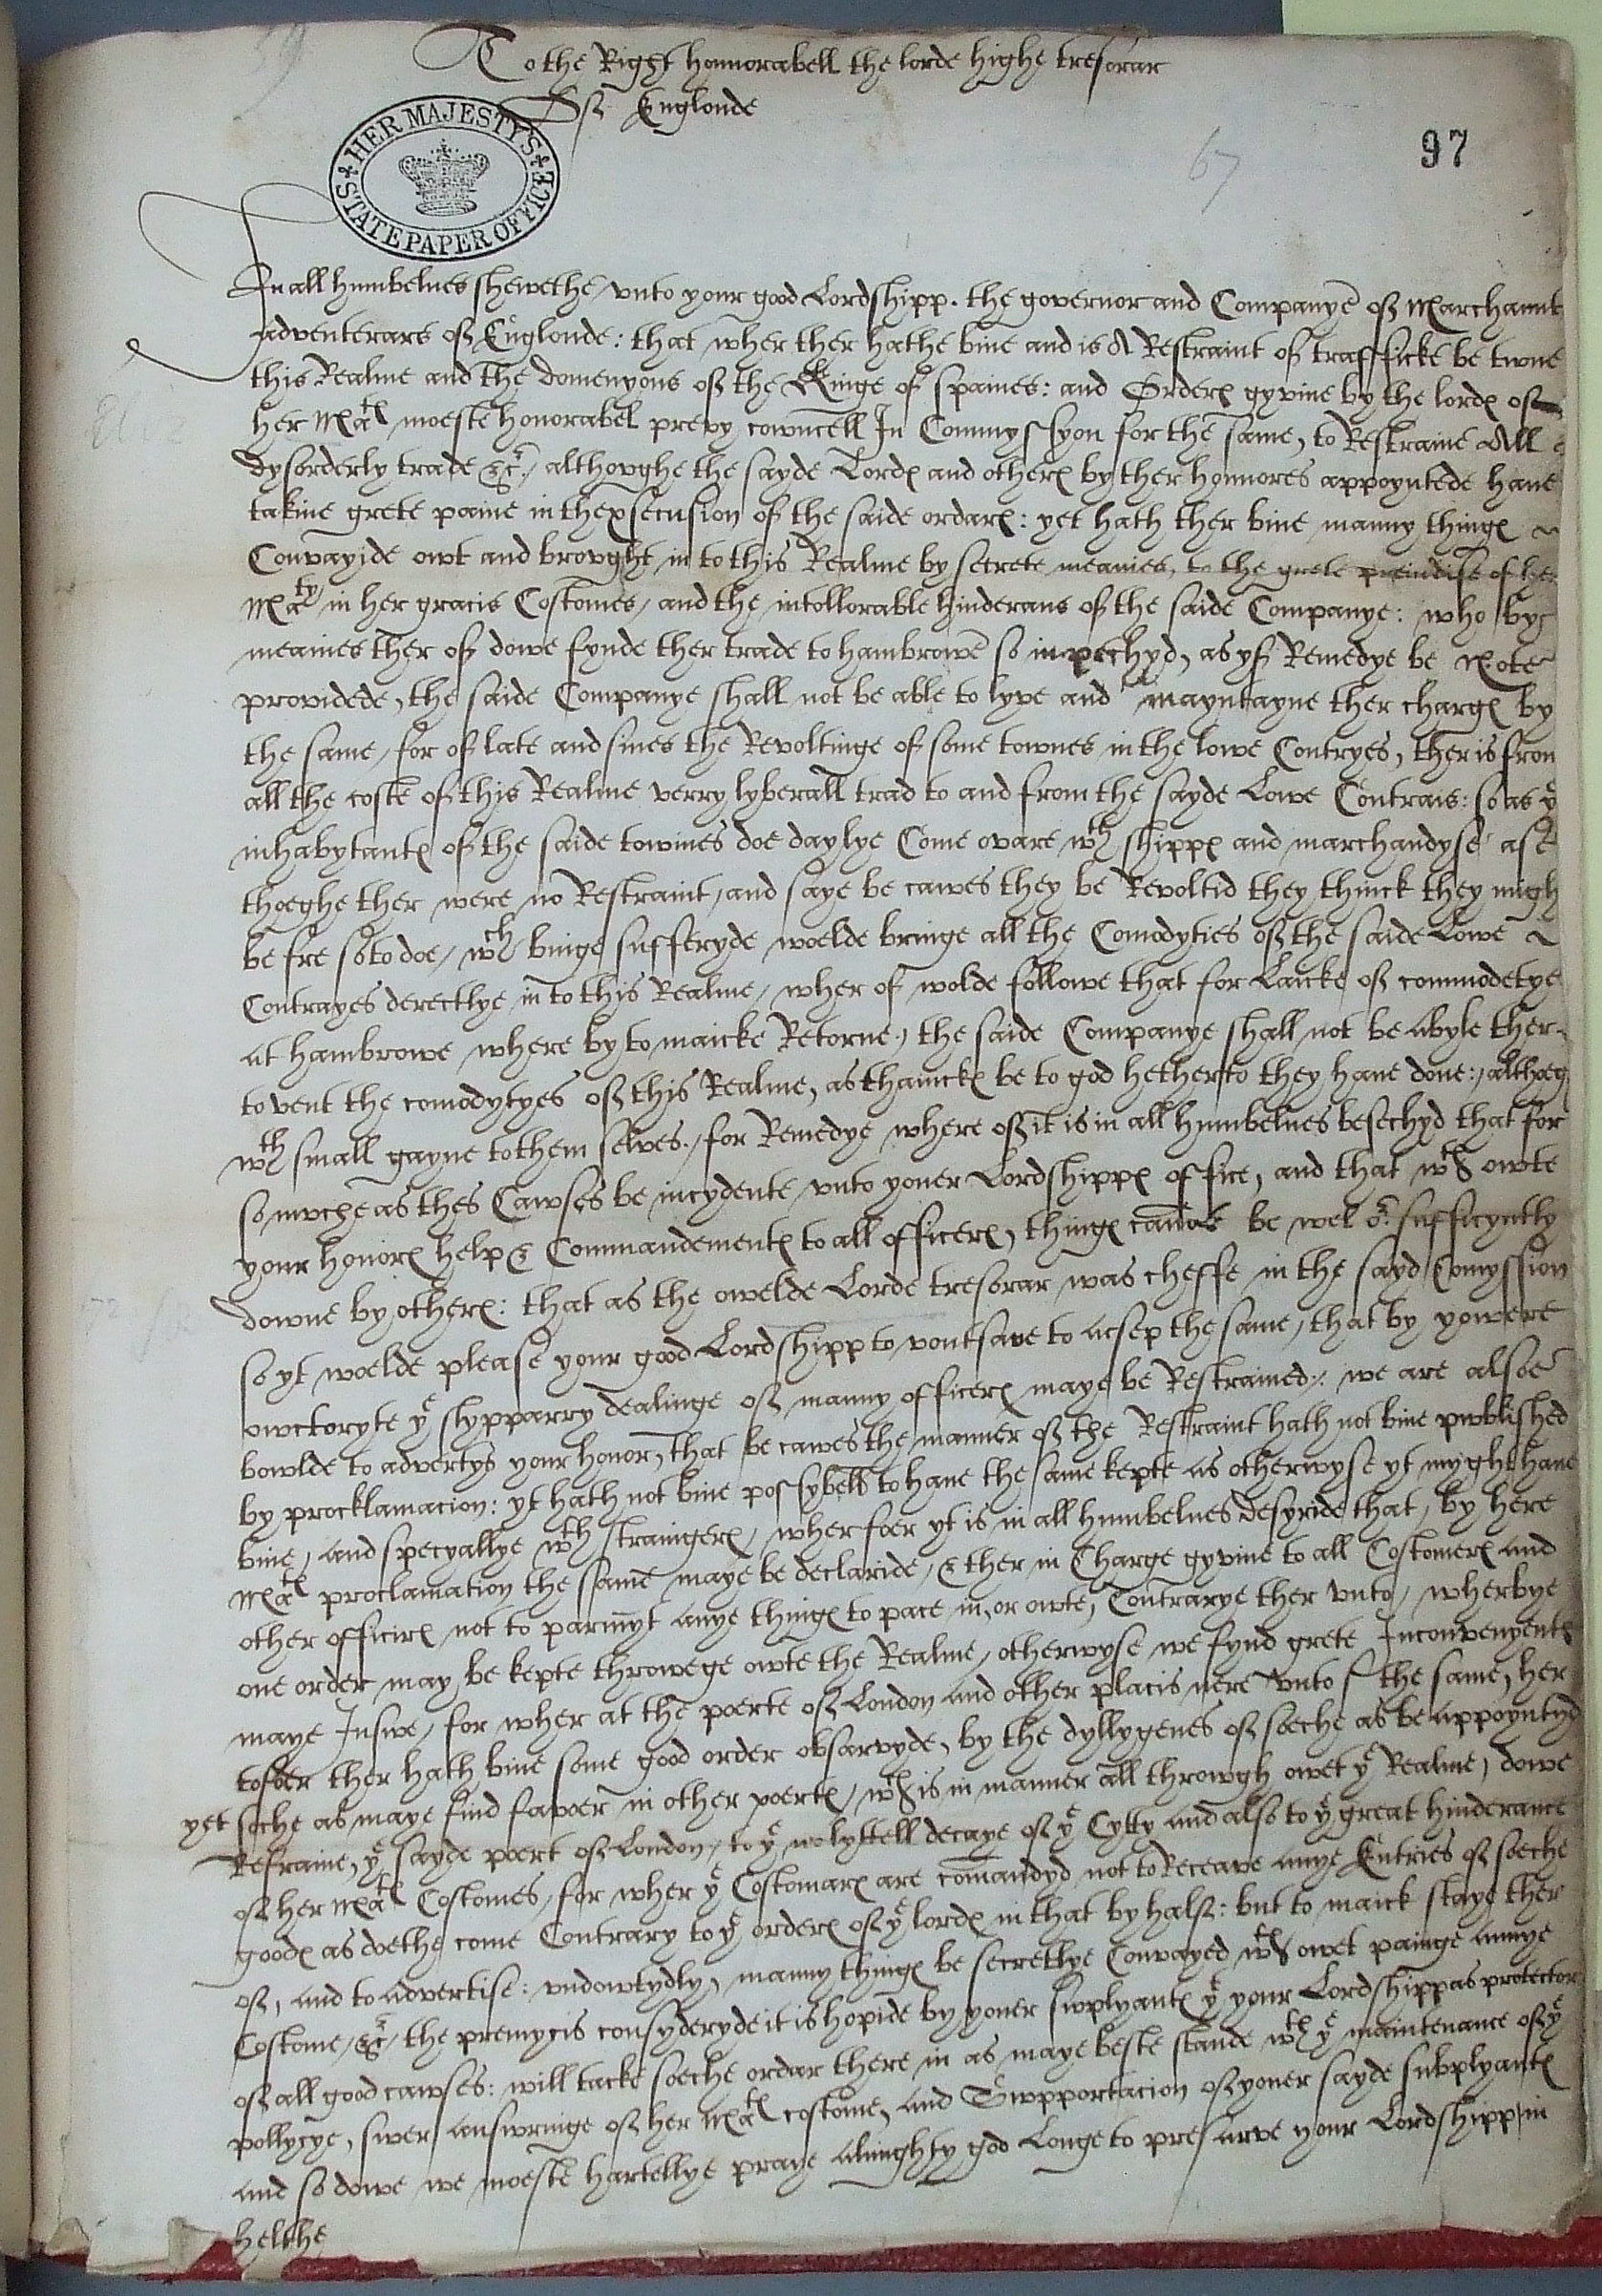 59
To the Right honnorabell the lorde highe tresorar
Off Englonde
HER MAJESTY'S STATE PAPER OFFICE
67
97
In all humbelnes shewethe vnto your good Lordshipp. the governor and Companye off Marchaunt
adventerars off Englonde: that wher ther hathe bine and is A Restraint of trafficke be twne
this Realme and the domenyons off the Kinge of spaines: and Orders gyvine by the lordes off
her Maties moeste honorabel prevy cowncell In Commyssyon for the same, to Restraine All
dysorderly trade &c, althovghe the sayde Lordes and others by ther honnores appoyntede have
takine grete paine in thexsecusion of the saide ordars: yet hath ther bine manny thinges
Convayide owt and brovght in to this Realme by secrete meanies, to the grete preiudise of her
Maty in her gracis Costomes, and the intollorable hinderans of the saide Companye: who by
meanies ther of dowe fynde ther trade to hambrowe so impechyd, as yf Remedye be Note
providede, the saide Companye shall not be able to lyve and mayntayne ther charges by
the same, for of late and sines the Revoltinge of some townes in the lowe Contryes, ther is from
all the coste of this Realme verry lyberall trad to and from the sayde Lowe Contrais: so as ye
inhabytantes of the saide townes doe daylye Come ovare wth shippes and marchandyse ase
thoeghe ther were no Restraint, and saye be cawes they be Revoltid they thinck they migh
be fre so to doe, wch binge sufferyde woelde bringe all the Comodyties off the saide Lowe
Contrayes derectlye in to this Realme, wher of wolde followe that for Laicke off commodetye
At hambrowe where by to maicke Retorne, the saide Companye shall not be Abyle ther
to vent the comodytyes off this Realme, as thainckes be to god hetherto they have done:, althoeg
wth small gayne to them selves., for Remedye where off it is in all humbelnes besechyd that for
so mvche as thes Cawses be incydente vnto youer Lordshippes office, and that wth owte
your honors help & Commandementes to all officers, thinges cannot be wel or sufficyntly
downe by others: that as the owelde Lorde tresorar was cheffe in the sayd Comyssion
so yt woelde please your good Lordshipp to voutsave to Acsep the same, that by yowere
owctoryte ye slypparry dealinge off manny officers maye be Restrained,: we are alsoe
bowlde to advertys your honor, that be cawes the manner off the Restraint hath not bine pwblished
by procklamacion: yt hath not bine possybell to have the same kepte As otherwyse yt myght have
bine, And specyallye wth straingers, wherfoer yt is in all humbelnes desyride that, by here
Maties proclamation the same maye be declaride, & ther in Charge gyvine to all Costomers And
other officirs not to parmyt Anye thinges to pace in, or owte, Contrarye ther vnto, wherbye
one order may be kepte throwege owte the Realme, otherwyse we fynd grete Inconvenyents
maye Inswe, for wher at the poerte off London And other placis nere vnto the same, her
tofoer ther hath bine some good order obsarvyde, by the dyllygenes off soeche as be Appoyntyd
yet soche as maye find favoer in other poertes, wch is in manner all throwgh owet ye Realme, dowe
Refraine, ye sayde poert off London, to ye no lyttell decaye off ye Cytty And also to ye great hinderance
off her Maties Costomes, for wher ye Costomars are comandyd not to Receave Anye Entries off soeche
goodes as doethe come Contrary to ye orders off ye lordes in that by half: but to maick staye ther
off, And to Advertise: vndowtydly, manny thinges be secretlye Convayed wth owet painge Annye
Costome, &c, the premycis consyderyde it is hopide by youer swplyantes ye your Lordshipp as protector
off all good cawses: will tacke soeche ordar there in as maye beste stande wth ye maintenance off ye
pollycye, swer Answringe off her Maties costome, And Swpportacion off youer sayde subplyantes
And so dowe we moeste hartellye praye Almighty god Longe to presarve your Lordshipp in
helthe